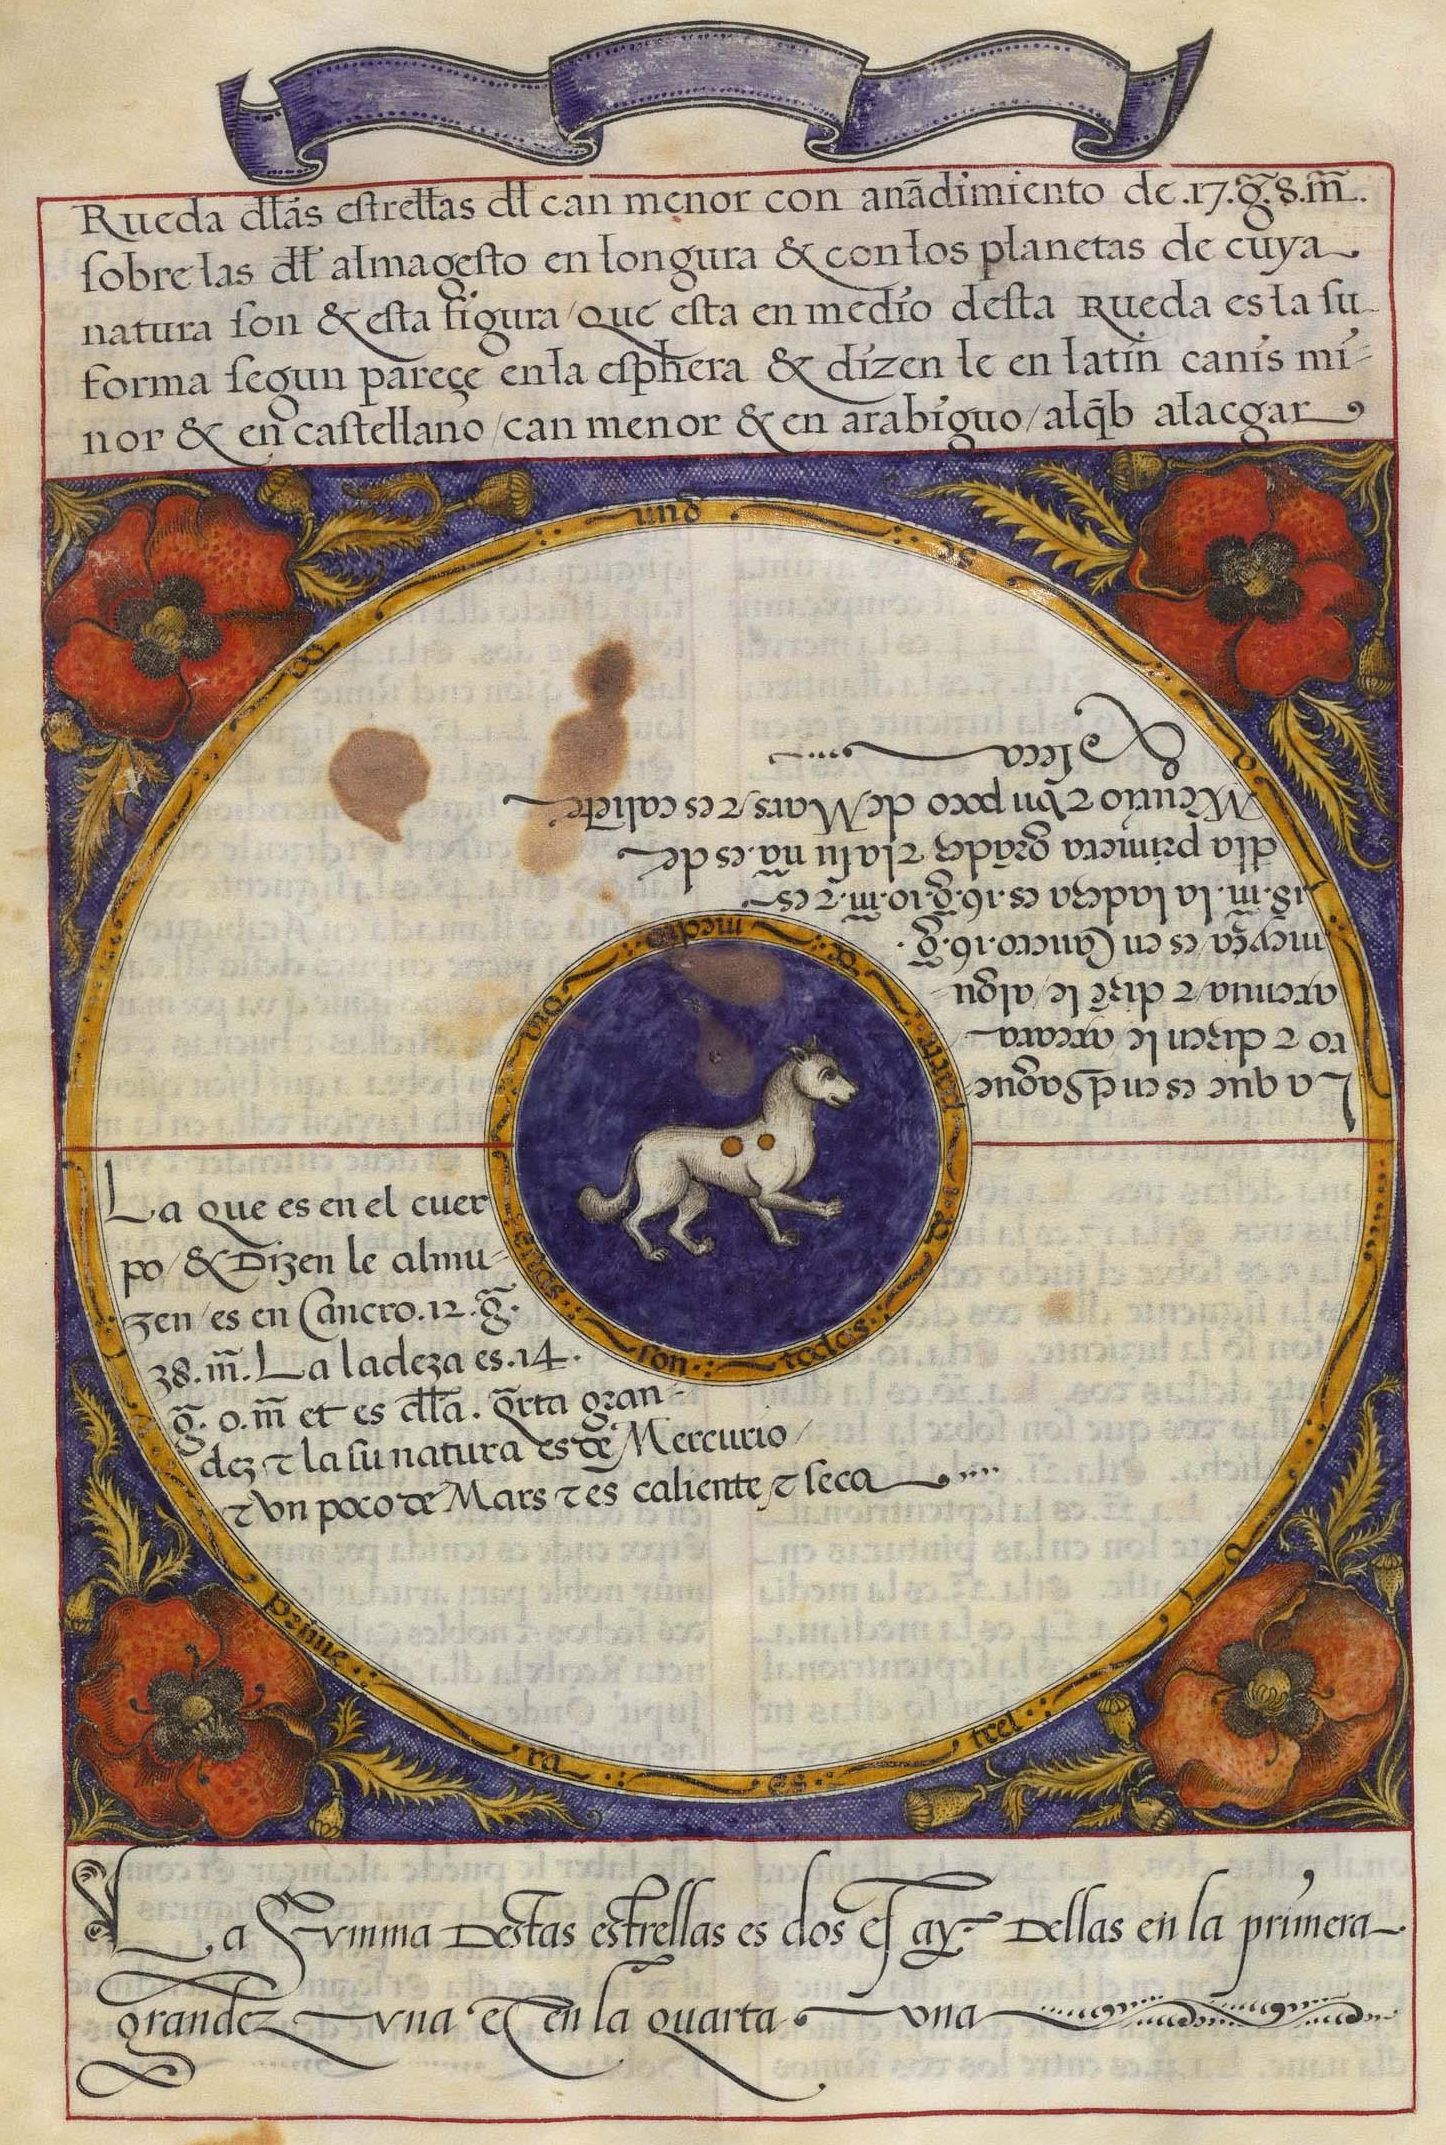 Rueda dłłas estrełłas dł can menor con anãdimiento de .17.g̃.8.m̃.
sobre las dł almagesto en longura & con los planetas de cuya
natura son & esta figura / que esta en medio desta Rueda es la su
forma segun pareçe en la esphera & dizen le en latin canis mi-
nor & en castellano / can menor & en arabiguo / alq̃b alacgar
La que es en el cuer
po / & Dizen le almu-
zen / es en Cancro .12. g̃.
38. m̃. La ladeza es .14.
g̃. 0. m̃ et es dłła. q̃rta gran-
dez τ la su natura es de Mercurio /
τ vn poco de Mars τ es caliente, τ seca
La que es en
ro τ dizen le
axemia τ dizẽ le / algu
meyça / es en Cancro .16. g̃.
18. m̃. la ladeza es .16. g̃. 10. m̃. τ es
dlla primera grãdez τ la su nã. es de
τ vn poco de Mars / τ es caliẽte
& seca
La es trel
es
ra
prime
son todas
medio
La Summa Destas estrellas es dos Et ay Dellas en la primera
grandez vna et en la quarta vna